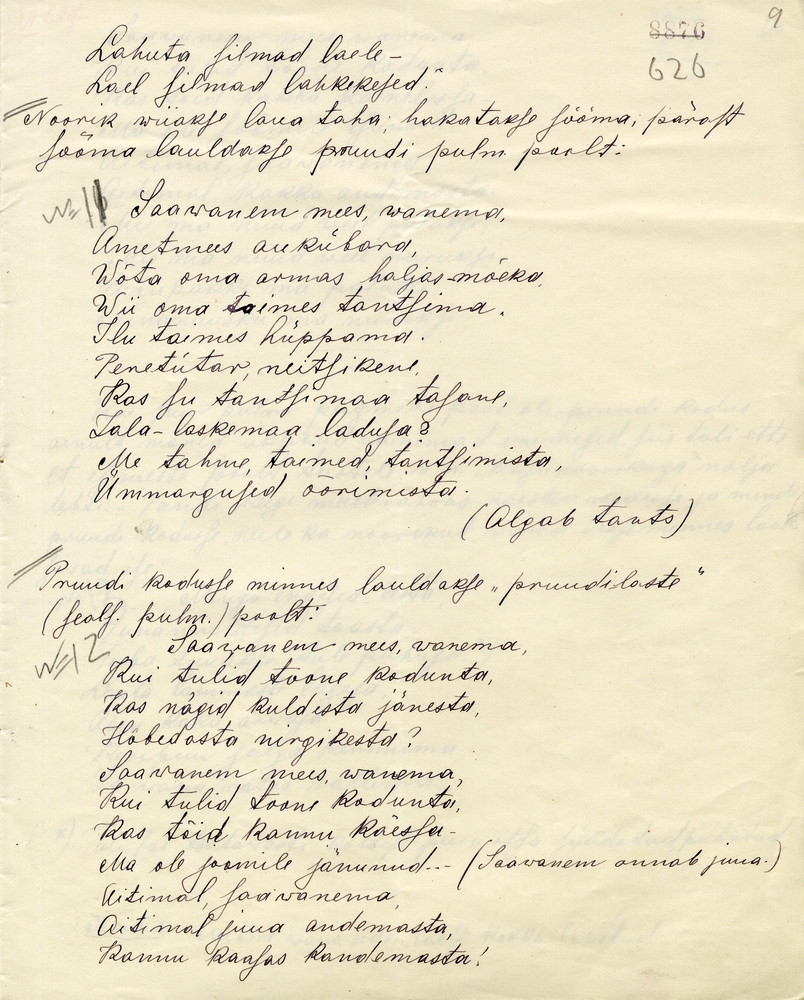 9
8876
626
Lahuta silmad laele –
Lael silmad lahkekesed."
Noorik wiiakse laua taha; hakatakse sööma; pärast
sööma lauldakse pruudi pulm. poolt:
№ 11 Saawanem mees, wanema,
Ametmees aukübara,
Wõta oma armas haljas-mõeka,
Wii oma taimes tantsima.
Ilu taimes hüppama.
Penetütar, neitsikene,
Kas su tantsimaa tasane,
Jala-laskemaa ladusa?
Me tahme, taemed, tantsimista,
Ümmargused öörimista.
(Algab tants)
Pruudi kodusse minnes lauldakse „pruudilaste"
(seals. pulm.) poolt:
№ 12 Saawanem mees, wanema,
Kui tulid toone kodunta,
Kas nägid kuldista jänesta,
Hõbedasta nirgikesta?
Saawanem mees, wanema,
Kui tulid toone kodunta,
Kas tõid kannu käessa –
Ma ole joomile jänunud... (Saawanem annab juua.)
Aitimal, saawanema,
Aitimal juua andemasta,
Kannu kaasas kandemasta!